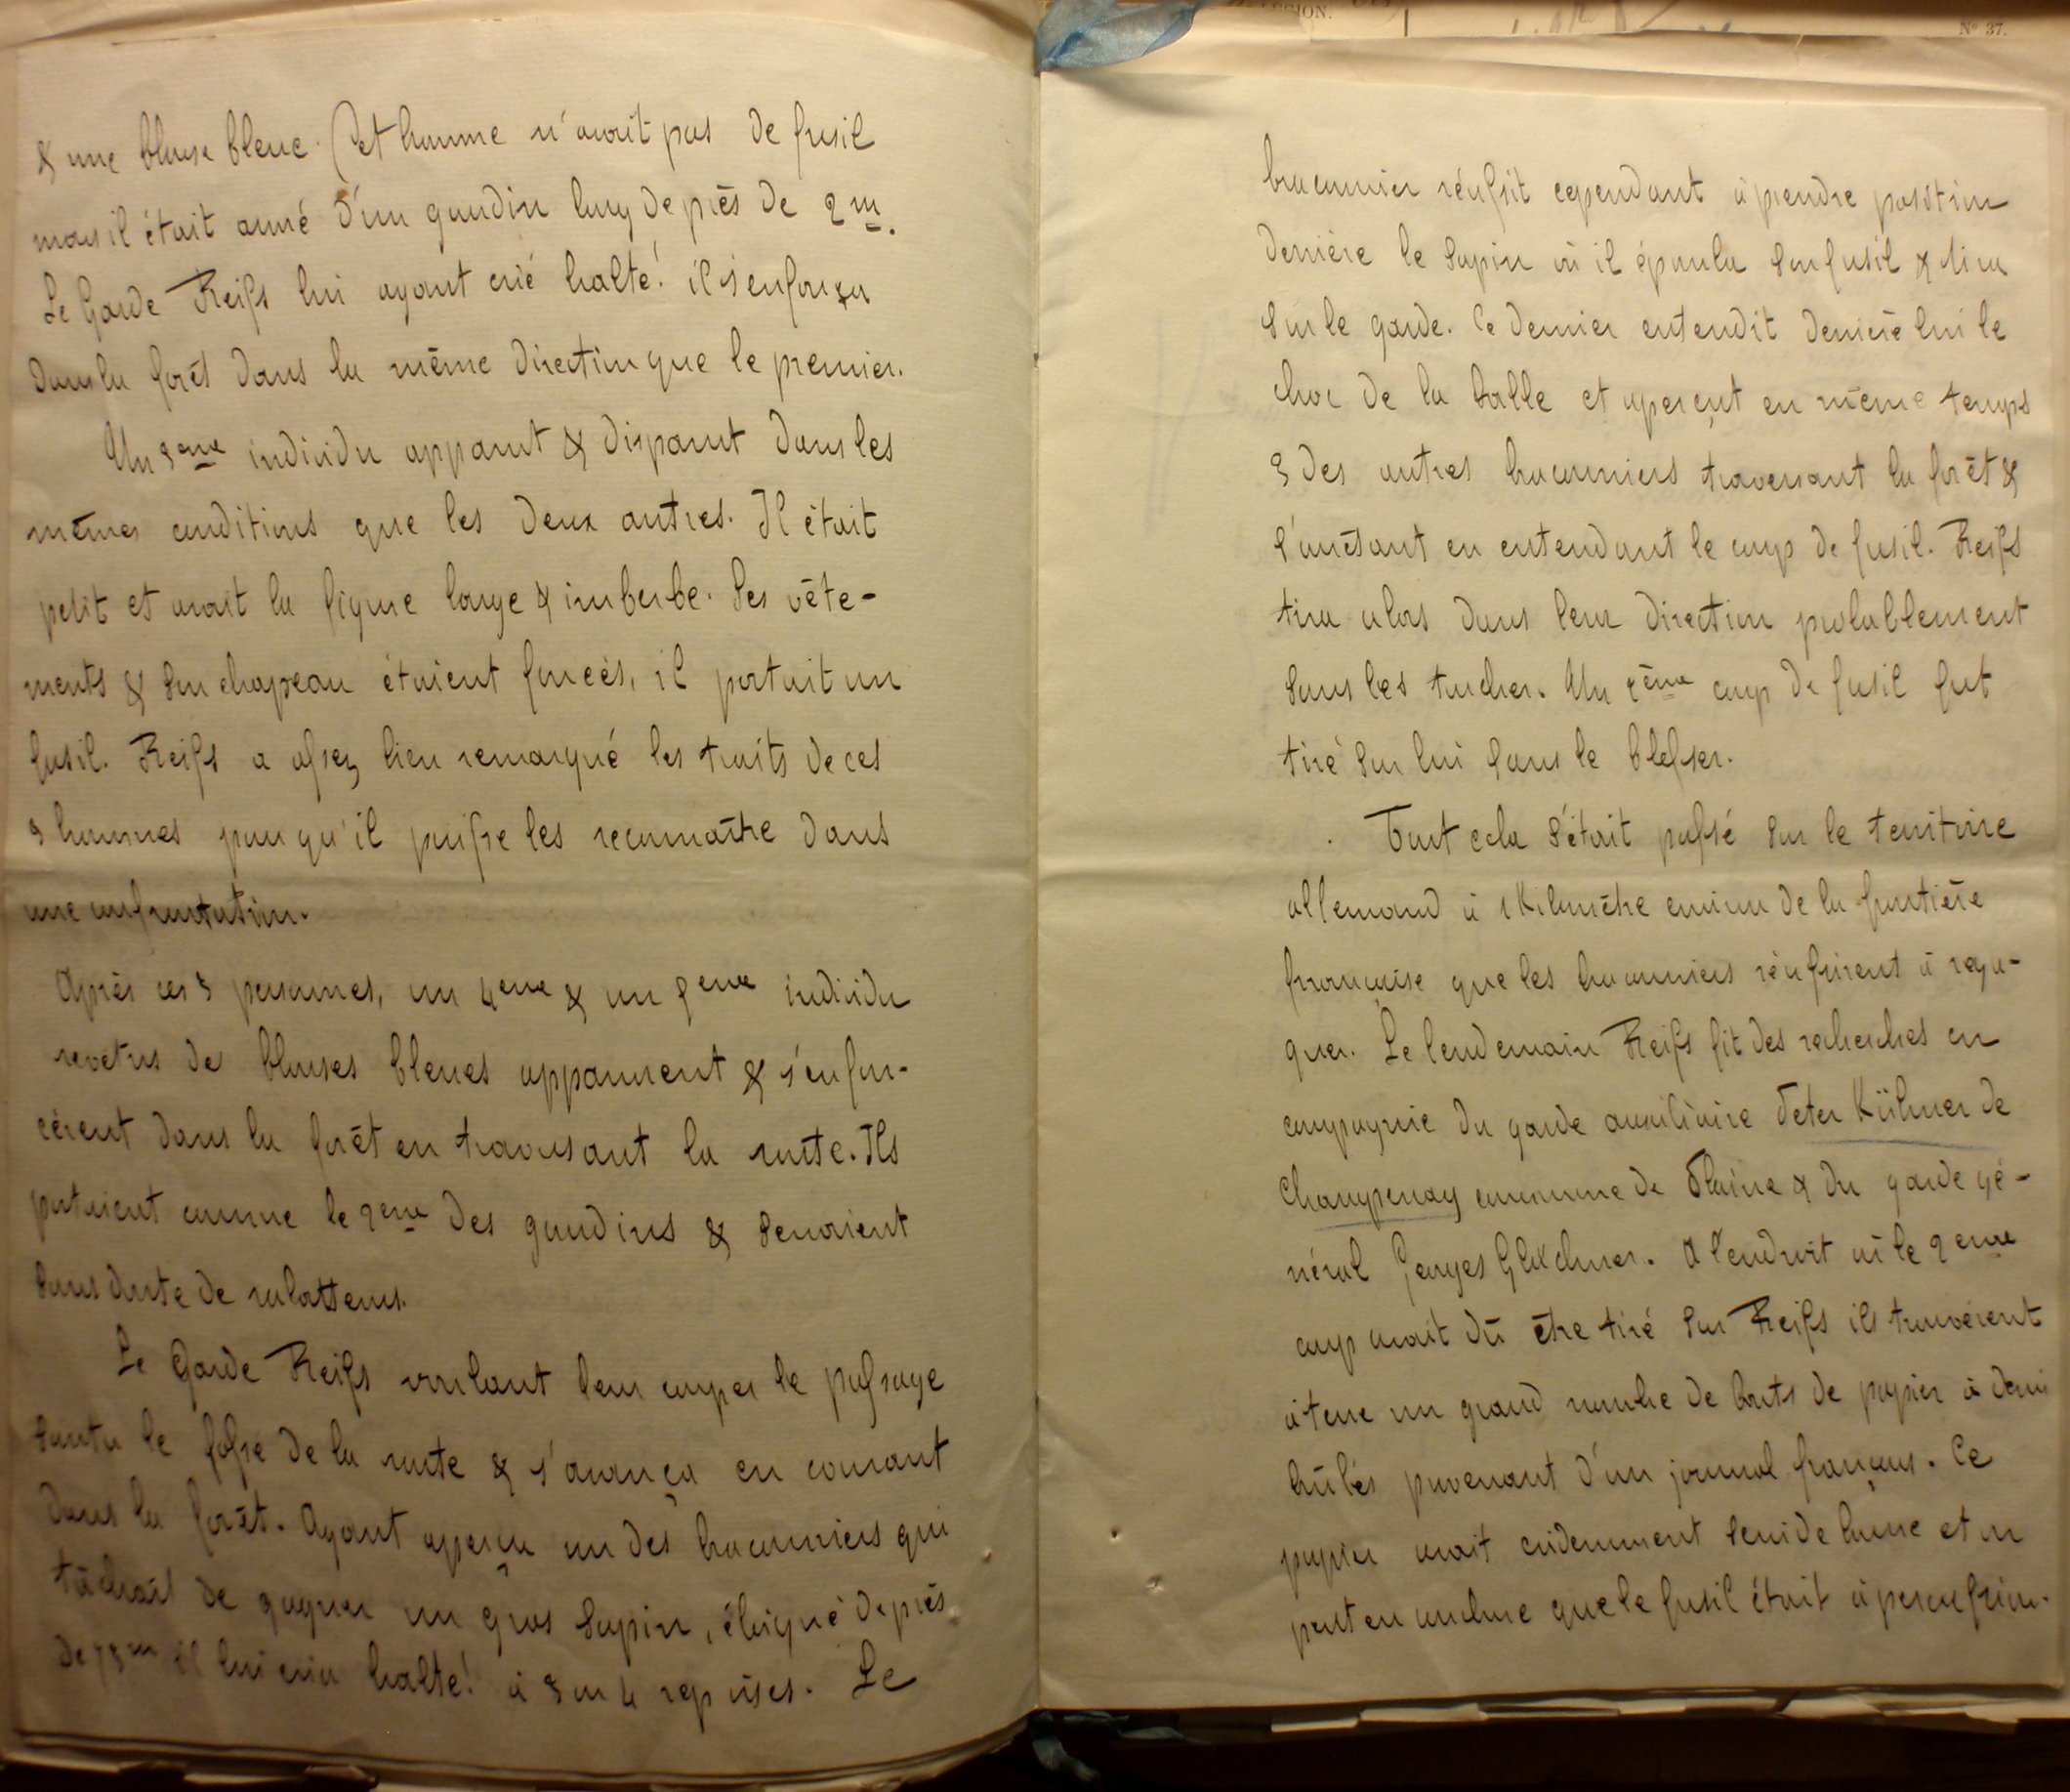 & une blouse bleue. Cet homme n'avait pas de fusil
mais il était armé d'un gourdin long de près de 2 m.
Le Garde Reifs lui ayant crié halte! il s'enfonça
dans la forêt dans la même direction que le premier.
Un 3eme individu apparut & disparut dans les
mêmes conditions que les deux autres. Il était
petit et avait la figure large & imberbe. Ses vête-
ments & son chapeau étaient foncés, il portait un
fusil. Reifs a assez bien remarqué les traits de ces
3 hommes pour qu'il puisse les reconnaître dans
une confrontation.
Après ces 3 personnes, un 4eme & un 5eme individu
revêtus de blouses bleues apparurent & s'enfon-
cèrent dans la forêt en traversant la route. Ils
portaient comme le 2eme des gourdins & servaient
sans doute de rabatteurs.
Le Garde Reifs voulant leur couper le passage
sauta le fossé de la route & s'avança en courant
dans la forêt. Ayant aperçu un des braconniers qui
tâchait de gagner un gros sapin, éloigné de près
de 75m il lui cria halte! à 3 ou 4 reprises. Le
N° 37.
braconnier réussit cependant à prendre position
derrière le sapin où il épaula son fusil & tira
sur le garde. Ce dernier entendit derrière lui le
choc de la balle et aperçut en même temps
3 des autres braconniers traversant la forêt &
s'arrêtant en entendant le coup de fusil. Reifs
tira alors dans leur direction probablement
sans les toucher. Un 2ème coup de fusil fut
tiré sur lui sans le blesser.
Tout cela s'était passé sur le territoire
allemand à 1 Kilomètre environ de la frontière
française que les braconniers réussirent à rega-
gner. Le lendemain Reifs fit des recherches en
compagnie du garde auxiliaire Peter Kühner de
Champenay commune de Plaine & du garde gé-
néral Georges. A l'endroit où le 2eme
coup avait dû être tiré sur Reifs ils trouvèrent
à terre un grand nombre de bouts de papier à demi
brûlés provenant d'un journal français. Ce
papier avait evidemment servi de bourre et on
peut en conclure que le fusil était à percussion.